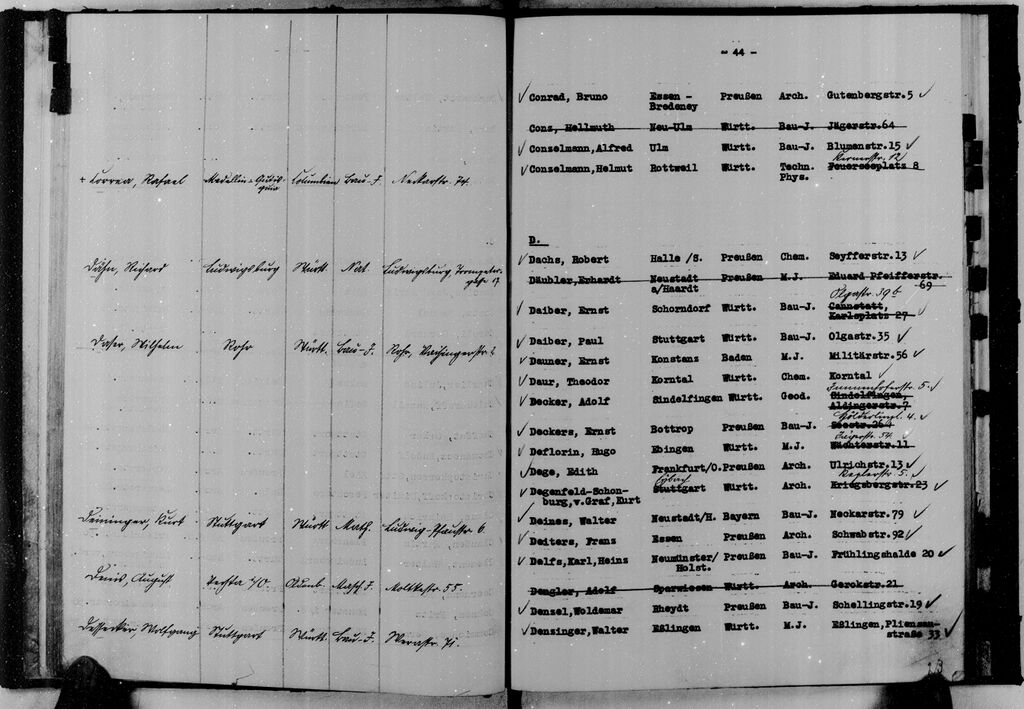 + Correa, Rafael Medellin - Columbien Bau-J. Neckarstr. 74.
Dähn, Richard Ludwigsburg Württ. Nat. Ludwigsburg,
Daser, Wilhelm Rohr Württ. Bau-J. Rohr, Vaihingerstr.
Deininger, Kurt Stuttgart Württ. Math. Ludwig-Pfaustr. 6
Denis, August Masch.J. Moltkestr. 55.
Dessecker, Wolfgang Stuttgart Württ. Bau-J. Werastr. 71.
- 44 -
Conrad, Bruno Essen - Preußen Arch. Gutenbergstr.5
Bredeney
Conz, Hellmuth Neu-Ulm Württ. Bau-J. Jägerstr.64
Conzelmann,Alfred Ulm Württ. Bau-J. Blumenstr.15
Kernerstr. 12
Conzelmann,Helmut Rottweil Württ. Techn. Feuerseeplatz 8
Phys.
D.
Dachs, Robert Halle /S. Preußen Chem. Seyfferstr.13
Däubler,Erhardt Neustadt Preußen M.J. Eduard Pfeifferstr.
a/Haardt 69
Olgastr. 39b
Daiber, Ernst Schorndorf Württ. Bau-J. Cannstatt,
Karlsplatz 27
Daiber, Paul Stuttgart Württ. Bau-J. Olgastr.35
Dauner, Ernst Konstanz Baden M.J. Militärstr.56
Daur, Theodor Korntal Württ. Chem. Korntal
Decker, Adolf Sindelfingen Württ. Geod. Sindelfingen,
Aldingerstr.7
Hölderlinpl. 4.
Deckers, Ernst Bottrop Preußen Bau-J. Seestr.
Jägerstr. 54.
Deflorin, Hugo Ebingen Württ. M.J. Wächterstr.11
Dege, Edith Frankfurt/O.Preußen Arch. Ulrichstr.13
Eybach Keplerstr. 5.
Degenfeld-Schon- Stuttgart Württ. Arch. Kriegsbergstr.23
burg,v.Graf,Kurt
Deines, Walter Neustadt/H. Bayern Bau-J. Neckarstr.79
Deiters, Franz Essen Preußen Arch. Schwabstr.92
Delfs,Karl,Heinz Neumünster/ Preußen Bau-J. Frühlingshalde 20
Holst.
Dengler, Adolf Sparwiesen Württ. Arch. Gerokstr.21
Denzel,Woldemar Rheydt Preußen Bau-J. Schellingstr.19
Denzinger,Walter Eßlingen Württ. M.J. Eßlingen,Pliensau-
straße 33